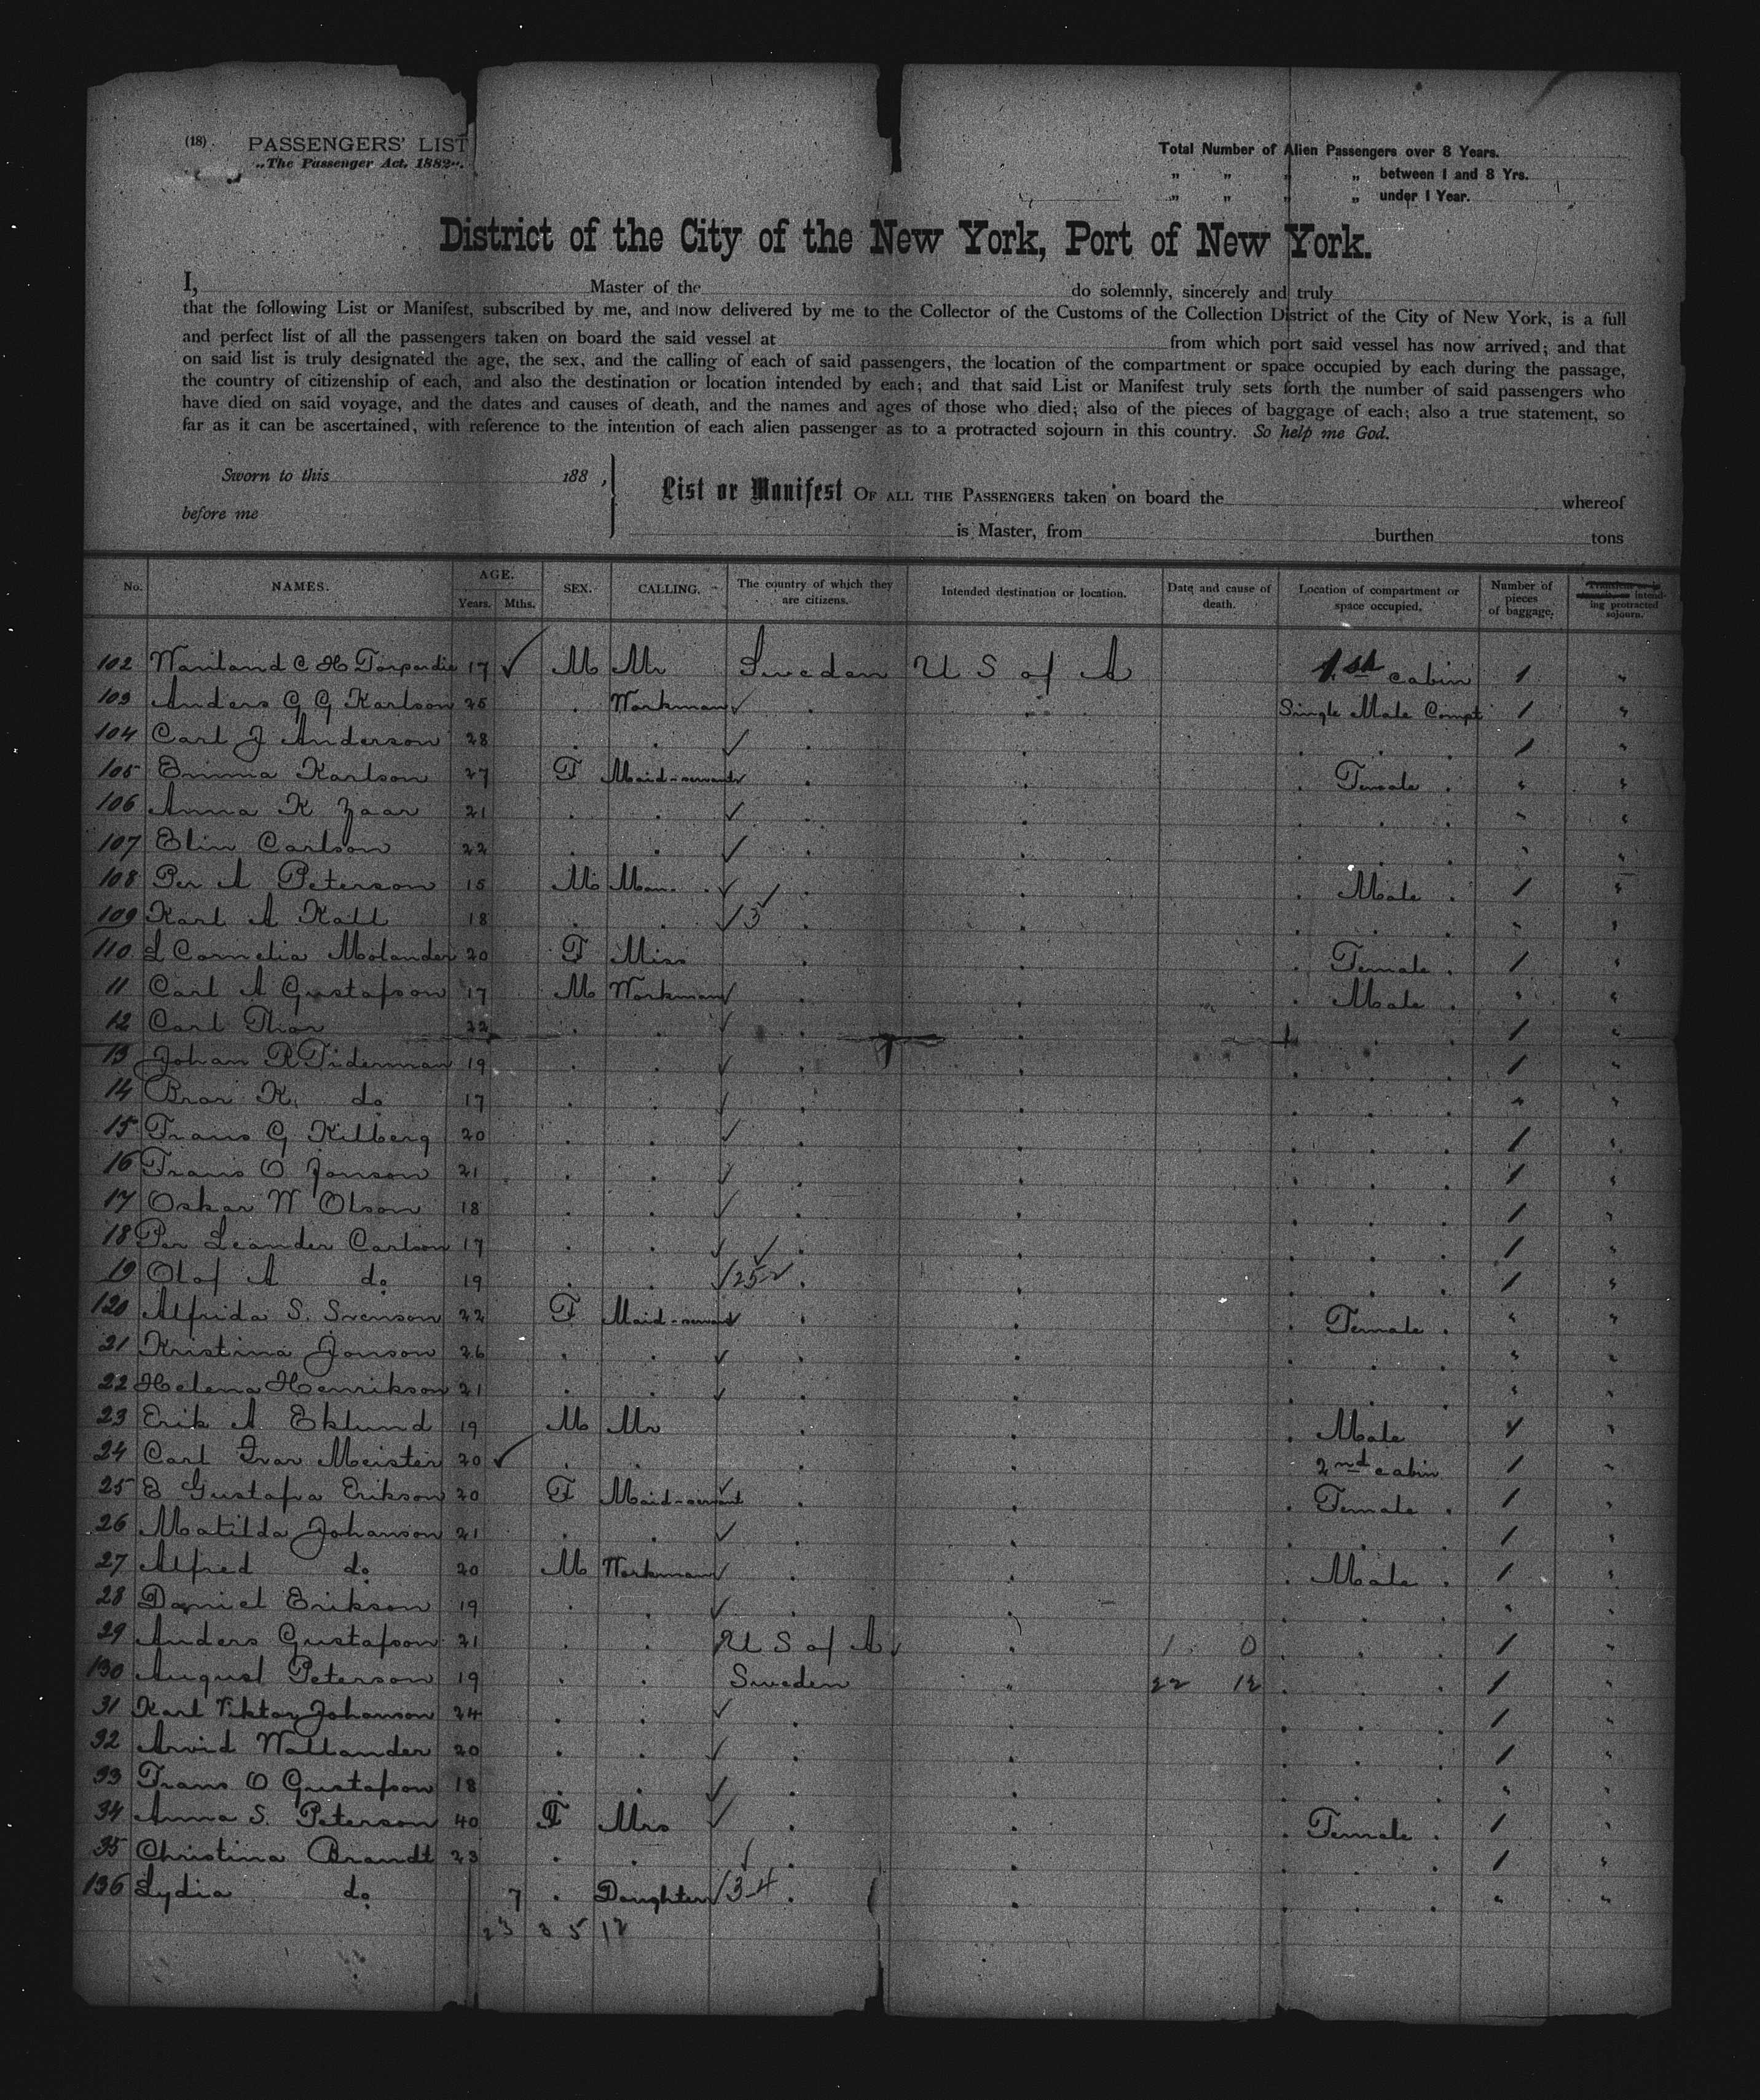 (18). PASSENGERS' LIST
„The Passenger Act, 1882".
Total Number of Alien Passengers over 8 Years.
„ „ „ „ between 1 and 8 Yrs.
„ „ „ „ under 1 Year.
District of the City of the New York, Port of New York.
I, Master of the do solemnly, sincerely and truly
that the following List or Manifest, subscribed by me, and now delivered by me to the Collector of the Customs of the Collection District of the City of New York, is a full
and perfect list of all the passengers taken on board the said vessel at from which port said vessel has now arrived; and that
on said list is truly designated the age, the sex, and the calling of each of said passengers, the location of the compartment or space occupied by each during the passage,
the country of citizenship of each, and also the destination or location intended by each; and that said List or Manifest truly sets forth the number of said passengers who
have died on said voyage, and the dates and causes of death, and the names and ages of those who died; also of the pieces of baggage of each; also a true statement, so
far as it can be ascertained, with reference to the intention of each alien passenger as to a protracted sojourn in this country. So help me God.
Sworn to this 188 ,
before me
List or Manifest OF ALL THE PASSENGERS taken on board the whereof
is Master, from burthen tons
No. NAMES. AGE. Years. Mths. SEX. CALLING. The country of which they are citizens. Intended destination or location. Date and cause of death. Location of compartment or space occupied. Number of pieces of baggage. intending protracted sojourn.
102 C H 17 ✓ M Mr Sweden U S of A 1st cabin 1 "
103 Anders G G Karlson 25 . Workman ✓ . " Single Male Compt 1 "
104 Carl J Anderson 28 . . ✓ . . . . . 1 "
105 Emma Karlson 27 F Maid-servant ✓ . . . Female . " "
106 Anna K Zaar 21 . . ✓ . . . . . " "
107 Elin Carlson 22 . . ✓ . . . . . " "
108 Per A Peterson 15 M Man . ✓ . . . Male . 1 "
109 Karl A Kall 18 . . ✓ 3 . . . . . " "
110 L Cornelia Molander 20 F Miss . . . Female . 1 "
11 Carl A Gustafson 17 M Workman ✓ . . . Male . " "
12 Carl Thor 22 . . ✓ . . . . 1 "
13 Johan R Tiderman 19 . . ✓ . . . . . 1 "
14 Bror K. do 17 . . ✓ . . . . . " "
15 Frans G Kilberg 20 . . ✓ . . . . . 1 "
16 Frans O Jonson 21 . . ✓ . . . . . 1 "
17 Oskar W Olson 18 . . ✓ . . . . . 1 "
18 Per Leander Carlson 17 . . ✓ . . . . . 1 "
19 Olof A do 19 . . ✓ 25 . . . . . 1 "
120 Alfrida S. Svenson 22 F Maid-servant ✓ . . . Female . " "
21 Kristina Jonson 26 . . ✓ . . . . . " "
22 Helena Henrikson 21 . . ✓ . . . . . " "
23 Erik A Eklund 19 M Mr . . . Male 1 "
24 Carl Ivar Meister 20 ✓ . . . . 2nd cabin 1 "
25 E Gustafva Erikson 20 F Maid-servant ✓ . . . Female . 1 "
26 Matilda Johanson 21 . . ✓ . . . . . 1 "
27 Alfred do 20 M Workman ✓ . . . Male . 1 "
28 Daniel Erikson 19 . . ✓ . . . . . " "
29 Anders Gustafson 21 . . U S of A . 1 0 . . . 1 "
130 August Peterson 19 . . Sweden " 22 12 . . . 1 "
31 Karl Viktor Johanson 24 . . ✓ . . . . . 1 "
32 Arvid Wallander 20 . . ✓ . . . . . 1 "
33 Frans O Gustafson 18 . . ✓ . . . . . " "
34 Anna S. Peterson 40 F Mrs ✓ . . . Female . 1 "
35 Christina Brandt 23 . . ✓ . . . . . 1 "
136 Lydia do 7 . Daughter ✓ 34 . . . . . " "
23 3 5 12